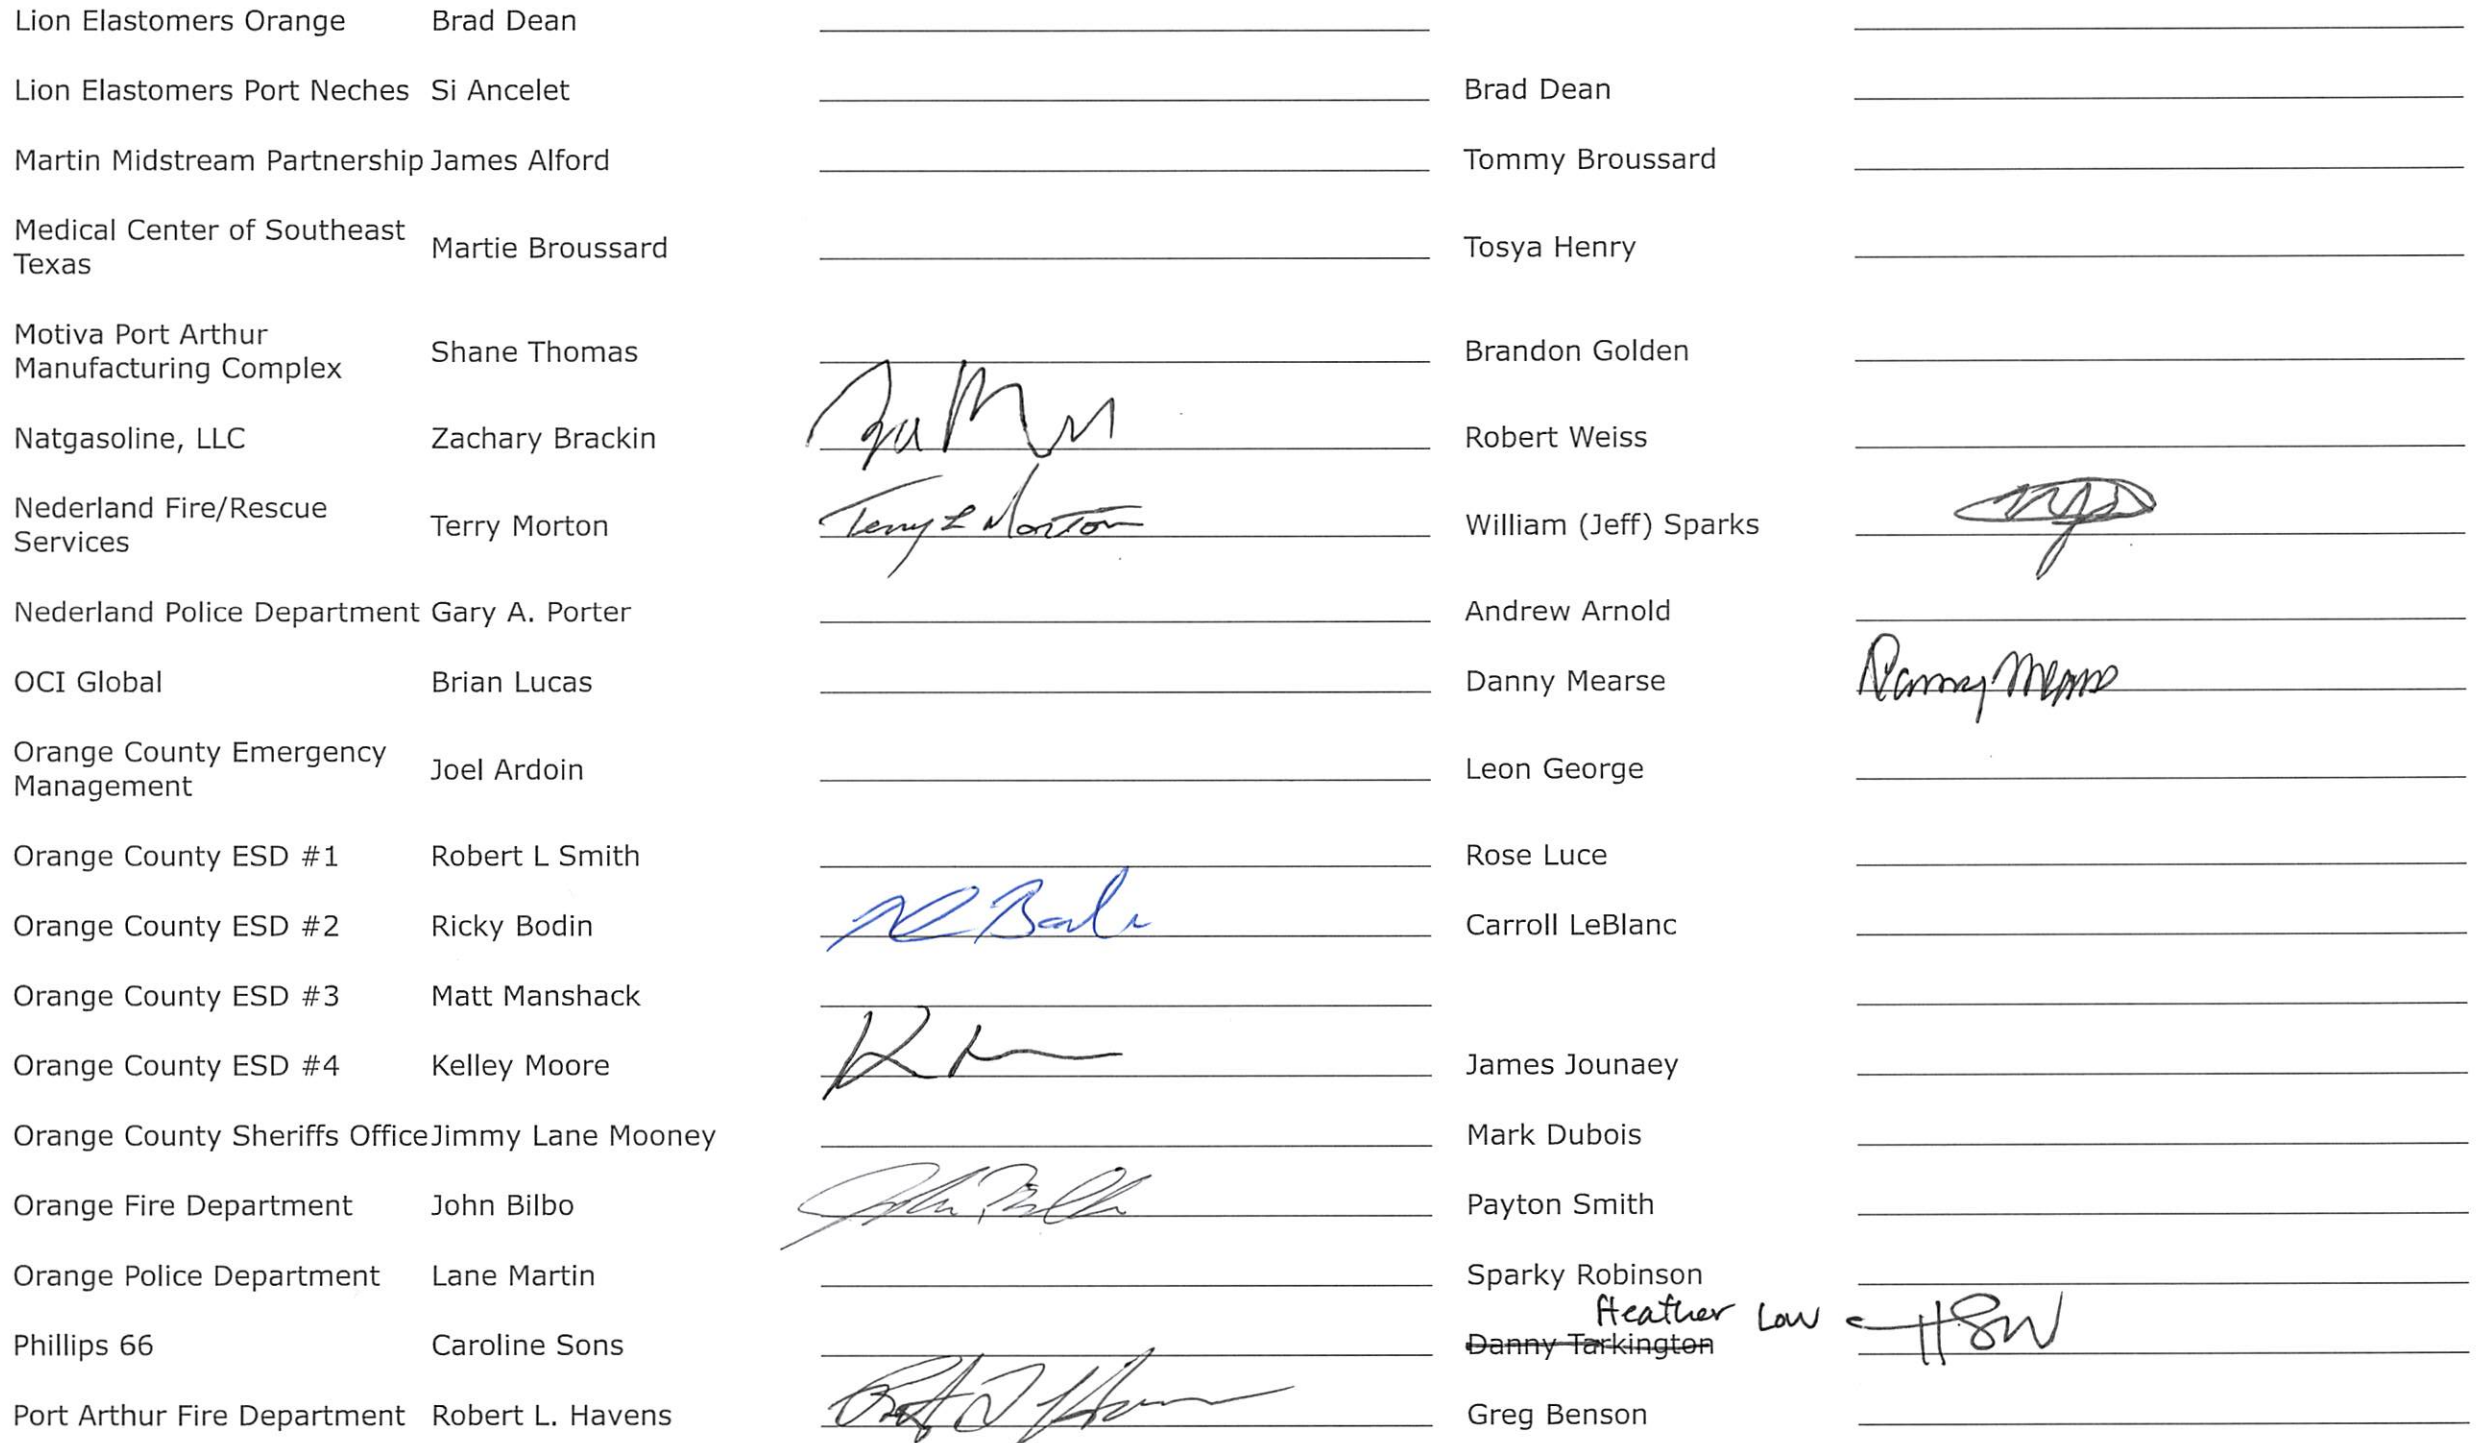 Lion Elastomers Orange Brad Dean
Lion Elastomers Port Neches Si Ancelet Brad Dean
Martin Midstream Partnership James Alford Tommy Broussard
Medical Center of Southeast
Texas Martie Broussard Tosya Henry
Motiva Port Arthur
Manufacturing Complex Shane Thomas Brandon Golden
Natgasoline, LLC Zachary Brackin Robert Weiss
Nederland Fire/Rescue
Services Terry Morton Terry L Morton William (Jeff) Sparks
Nederland Police Department Gary A. Porter Andrew Arnold
OCI Global Brian Lucas Danny Mearse Danny Mearse
Orange County Emergency
Management Joel Ardoin Leon George
Orange County ESD #1 Robert L Smith Rose Luce
Orange County ESD #2 Ricky Bodin Carroll LeBlanc
Orange County ESD #3 Matt Manshack
Orange County ESD #4 Kelley Moore James Jounaey
Orange County Sheriffs Office Jimmy Lane Mooney Mark Dubois
Orange Fire Department John Bilbo John Bilbo Payton Smith
Orange Police Department Lane Martin Sparky Robinson
Heather Low
Phillips 66 Caroline Sons Danny Tarkington
Port Arthur Fire Department Robert L. Havens Greg Benson